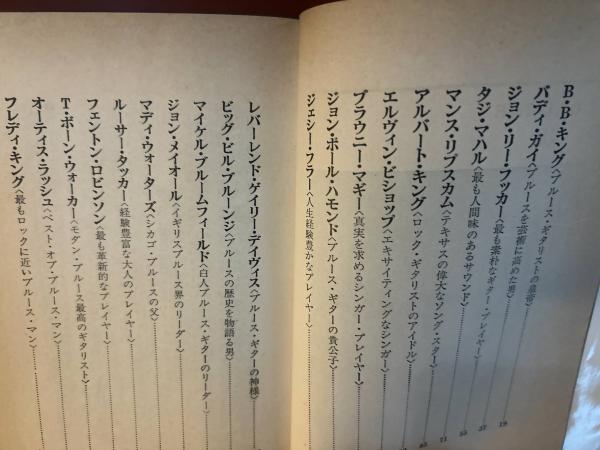 B・B・キング〈ブルース・ギタリストの皇帝〉
バディ・ガイ〈ブルースを芸術に高めた男〉 19
ジョン・リー・フッカー〈最も素朴なギター・プレイヤー〉 37
タジ・マハル〈最も人間味のあるサウンド〉 55
マンス・リプスカム〈テキサスの偉大なソング・スター〉 71
アルバート・キング〈ロック・ギタリストのアイドル〉
エルヴィン・ビショップ〈エキサイティングなシンガー〉
ブラウニー・マギー〈真実を求めるシンガー・プレイヤー〉
ジョン・ポール・ハモンド〈ブルース・ギターの貴公子〉
ジェシー・フラー〈人生経験豊かなプレイヤー〉
レバーレンド・ゲイリー・デイヴィス〈ブルース・ギターの神様〉
ビッグ・ビル・ブルーンジ〈ブルースの歴史を物語る男〉
マイケル・ブルームフィールド〈白人ブルース・ギターのリーダー〉
ジョン・メイオール〈イギリスブルース界のリーダー〉
マディ・ウォーターズ〈シカゴ・ブルースの父〉
ルーサー・タッカー〈経験豊富な大人のプレイヤー〉
フェントン・ロビンソン〈最も革新的なプレイヤー〉
T・ボーン・ウォーカー〈モダン・ブルース最高のギタリスト〉
オーティス・ラッシュ〈ベスト・オブ・ブルース・マン〉
フレディ・キング〈最もロックに近いブルース・マン〉